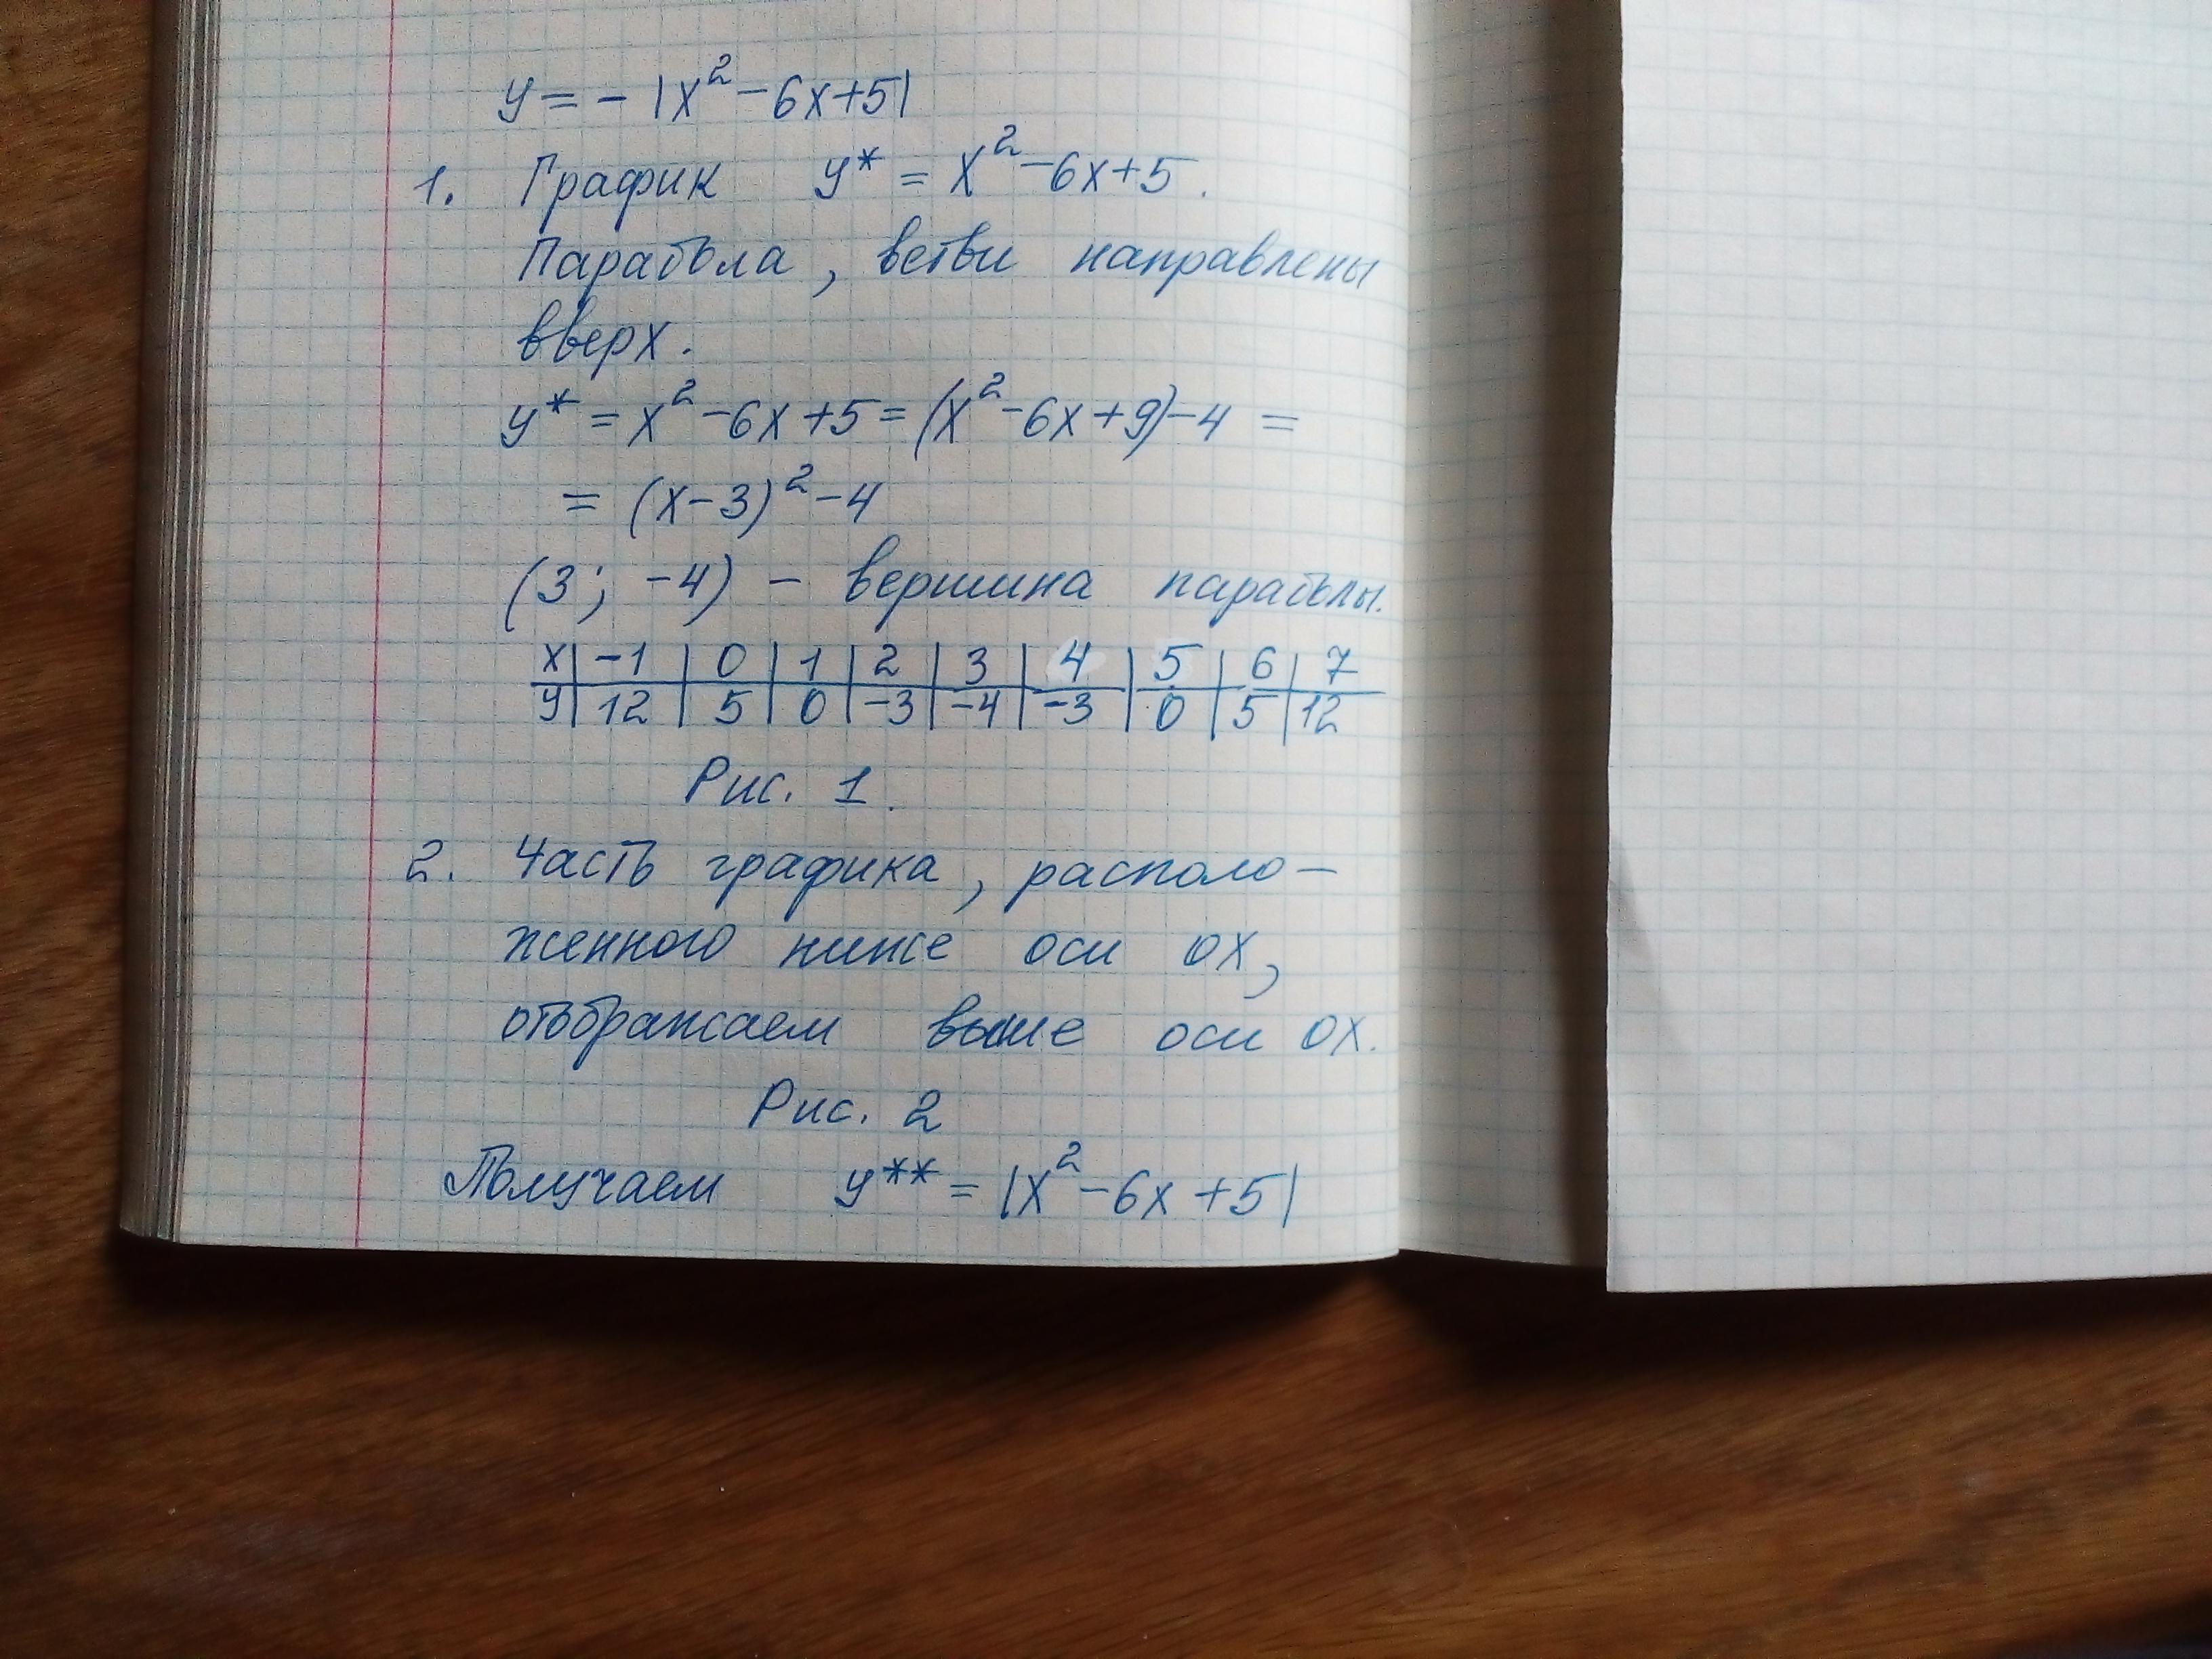 y = - |x² - 6x + 5|
1. График y* = x² - 6x + 5.
Парабола, ветви направлены
вверх.
y* = x² - 6x + 5 = (x² - 6x + 9) - 4 =
= (x - 3)² - 4
(3; -4) - вершина параболы.
x | -1 | 0 | 1 | 2 | 3 | 4 | 5 | 6 | 7
y | 12 | 5 | 0 | -3 | -4 | -3 | 0 | 5 | 12
Рис. 1.
2. Часть графика, располо-
женного ниже оси ОХ,
отображаем выше оси ОХ.
Рис. 2
Получаем y** = |x² - 6x + 5|